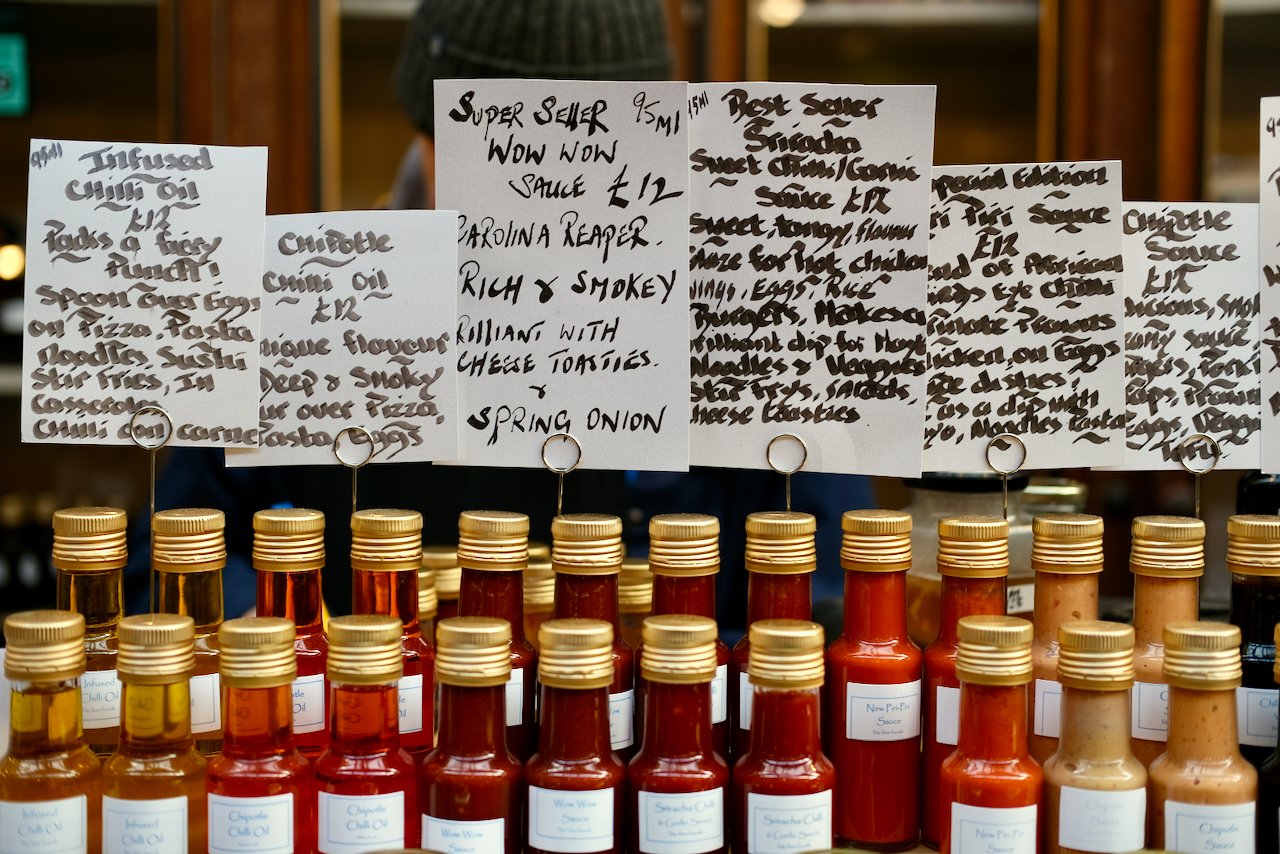 95ml
Infused
Chilli Oil
£12
Packs a fiery
Punch!
Spoon over Eggs
on Pizza, Pasta
Noodles, Sushi
Stir Fries, In
Casseroles
Chilli con carne
Chipotle
Chilli Oil
£12
ique flavour
Deep & Smoky
ur over Pizza,
Pasta Eggs
Super Seller 95ml
Wow Wow
Sauce £12
Carolina Reaper.
Rich & Smokey
rilliant with
Cheese Toasties.
&
Spring Onion
95ml
Best Seller
Sriracha
Sweet Chilli/Garlic
Sauce £12
Sweet, tangy, flavour
laze for hot chicken
ings, Eggs, Rice
Burgers, Makes a
rilliant dip for
Noodles & Veggies
Stir Frys, Salads,
heese toasties
pecial Edition
ri Piri Sauce
£12
of African
Eye Chilli
icken, on Eggs
ce dishes,
as a dip with
yo, Noodles Pasta
Chipotle
Sauce
£12
icious,
sauce
Eggs,
Tofu
Infused
Chilli Oil
New Piri-Piri
Sauce
Infused
Chilli Oil
Infused
Chilli Oil
Chipotle
Chilli Oil
Chipotle
Chilli Oil
Wow Wow
Sauce
Wow Wow
Sauce
Sriracha Chilli
& Garlic Sauce
Sriracha Chilli
& Garlic Sauce
New Piri-Piri
Sauce
Chipotle
Sauce